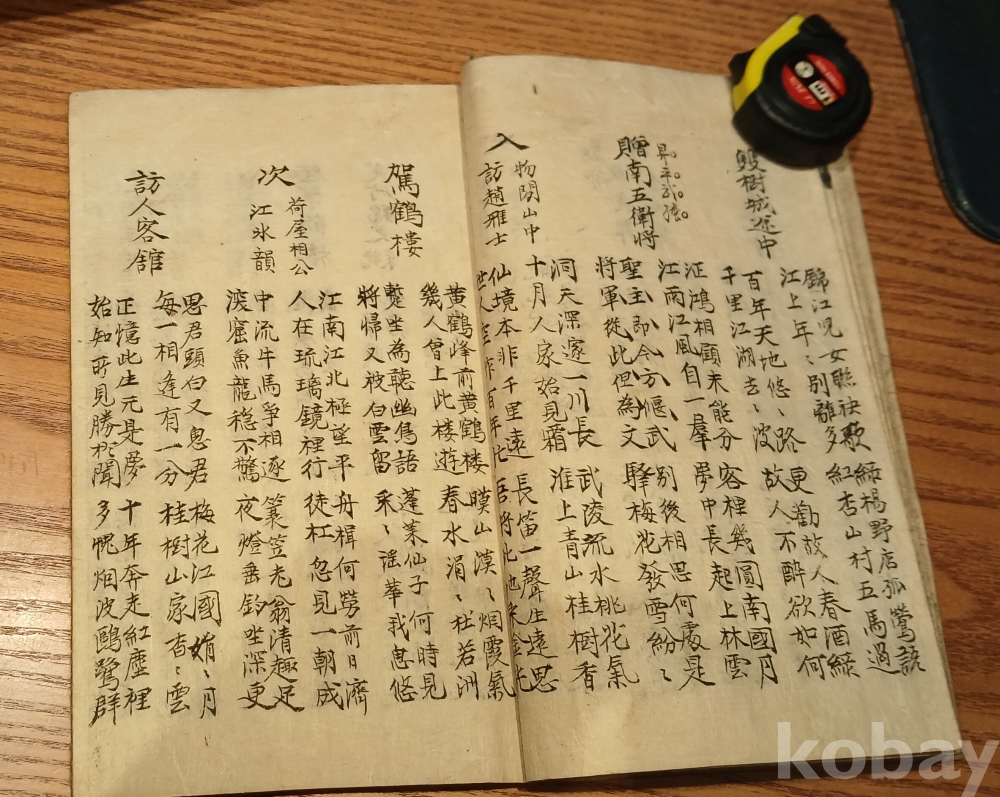 樹城途中
錦江兒女聯袂歌 綠楊野店孤鶯語
江上年ゝ別離多 紅杏山村五馬過
百年天地悠ゝ路 更勸故人春酒綠
千里江湖去ゝ波 故人不醉欲如何
贈南五衛將
征鴻相顧未能分 客裡幾圓南國月
江雨江風自一羣 夢中長起上林雲
聖主即今方偃武 別後相思何處是
將軍從此但為文 驛梅花發雪紛ゝ
入
物閑山中
訪趙雅士
洞天深邃一川長 武陵流水桃花氣
十月人家始見霜 淮上青山桂樹香
仙境本非千里遠 長笛一聲生遠思
世人 百年
駕鶴樓
黃鶴峰前黃鶴樓 暯山漠ゝ烟霞氣
幾人曾上此樓遊 春水涓ゝ杜若洲
蹔坐為聽幽鳥語 蓬莱仙子何時見
將歸又被白雲留 采ゝ瑤華我思悠
次
荷屋相公
江氷韻
江南江北極望平 舟楫何勞前日濟
人在琉璃鏡裡行 徒杠忽見一朝成
中流牛馬爭相逐 簑笠老翁清趣足
窟魚龍穩不驚 夜燈垂釣坐深更
訪人客舘
思君頭白又思君 梅花江國娟ゝ月
每一相逢有一分 桂樹山家杳ゝ雲
正憶此生元是夢 十年奔走紅塵裡
始知所見勝於聞 多愧烟波鷗鷺群
1m
kobay